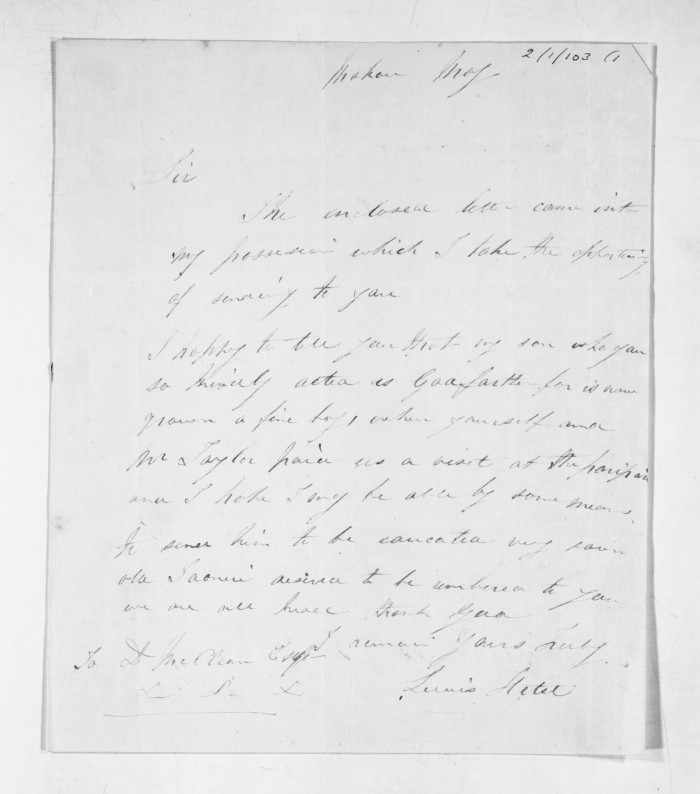 2/1/103 (1
May
Sir
The enclosed letter came into
my possession which I take the opportunity
of sending to you
I happy to tell you that my son who you
so kindly acted as Godfarther for is now
grown a fine boy, when yourself and
Mr Taylor paid us a visit at the
and I hope I may be able by some means
To send him to be educated very soon
old desired to be to you
we are all thank God
I remain Yours Truly
To D McClean Esqr
Lewis